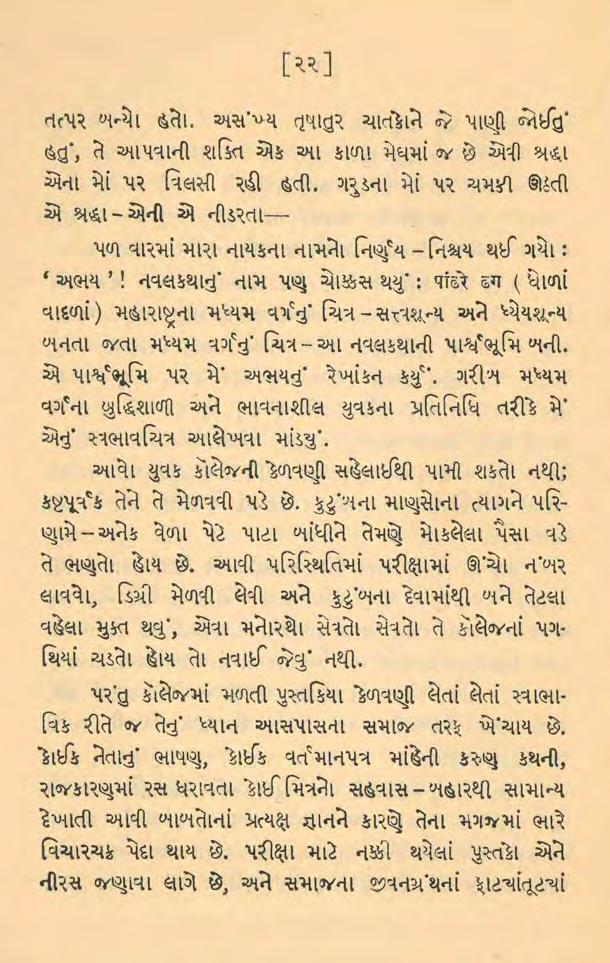 [૨૨]
તત્પર બન્યો હતો. અસંખ્ય તૃષાતુર ચાતકોને જે પાણી જોઈતું
હતું, તે આપવાની શક્તિ એક આ કાળા મેઘમાં જ છે એવી શ્રદ્ધા
એના મોં પર વિલસી રહી હતી. ગરુડના મોં પર ચમકી ઊઠતી
એ શ્રદ્ધા – એની એ નીડરતા—
પળ વારમાં મારા નાયકના નામનો નિર્ણય – નિશ્ચય થઈ ગયો :
‘ અભય ’ ! નવલકથાનું નામ પણ ચોક્કસ થયું : पांढरे ढग ( ધોળાં
વાદળાં ) મહારાષ્ટ્રના મધ્યમ વર્ગનું ચિત્ર – સત્ત્વશૂન્ય અને ધ્યેયશૂન્ય
બનતા જતા મધ્યમ વર્ગનું ચિત્ર – આ નવલકથાની પાર્શ્વભૂમિ બની.
એ પાર્શ્વભૂમિ પર મેં અભયનું રેખાંકન કર્યું. ગરીબ મધ્યમ
વર્ગના બુદ્ધિશાળી અને ભાવનાશીલ યુવકના પ્રતિનિધિ તરીકે મેં
એનું સ્વભાવચિત્ર આલેખવા માંડ્યું.
આવો યુવક કૉલેજની કેળવણી સહેલાઈથી પામી શકતો નથી;
કષ્ટપૂર્વક તેને તે મેળવવી પડે છે. કુટુંબના માણસોના ત્યાગને પરિ-
ણામે – અનેક વેળા પેટે પાટા બાંધીને તેમણે મોકલેલા પૈસા વડે
તે ભણતો હોય છે. આવી પરિસ્થિતિમાં પરીક્ષામાં ઊંચો નંબર
લાવવો, ડિગ્રી મેળવી લેવી અને કુટુંબના દેવામાંથી બને તેટલા
વહેલા મુક્ત થવું, એવા મનોરથો સેવતો સેવતો તે કૉલેજનાં પગ-
થિયાં ચડતો હોય તો નવાઈ જેવું નથી.
પરંતુ કૉલેજમાં મળતી પુસ્તકિયા કેળવણી લેતાં લેતાં સ્વાભા-
વિક રીતે જ તેનું ધ્યાન આસપાસના સમાજ તરફ ખેંચાય છે.
કોઈક નેતાનું ભાષણ, કોઈક વર્તમાનપત્ર માંહેની કરુણ કથની,
રાજકારણમાં રસ ધરાવતા કોઈ મિત્રનો સહવાસ – બહારથી સામાન્ય
દેખાતી આવી બાબતોનાં પ્રત્યક્ષ જ્ઞાનને કારણે તેના મગજમાં ભારે
વિચારચક્ર પેદા થાય છે. પરીક્ષા માટે નક્કી થયેલાં પુસ્તકો એને
નીરસ જણાવા લાગે છે, અને સમાજના જીવનગ્રંથનાં ફાટ્યાંતૂટ્યાં